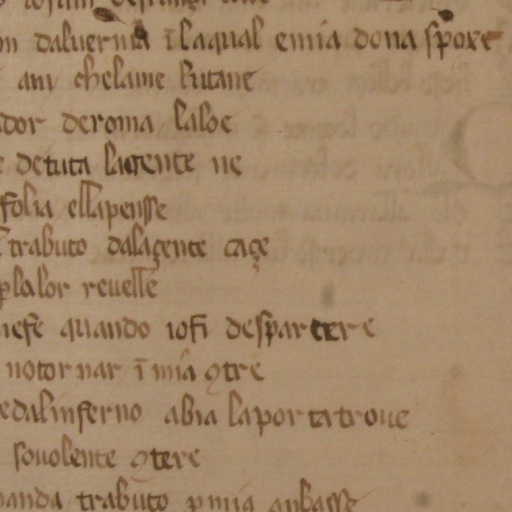 n daluernia ī laqual emia dona spoxe
am chelaine lutane
ador deroma laloe
e detuta lagente ne
folia ellapensse
trabuto dalaçente caçe
ꝑlalor reuelle
niese quando iofi despartere
notornar ī mia ꝯtre
edalinferno abia laportatroue
souolente ꝯtere
manda trabuto ꝑ mia anbasse